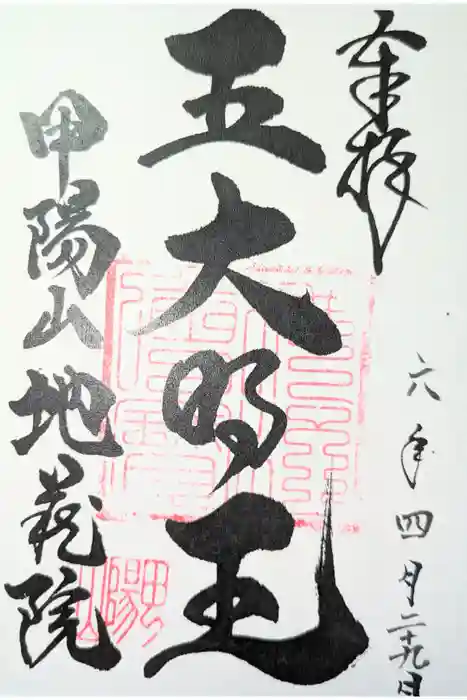 奉拝
六年四月二十九日
五大明王
甲陽山地蔵院